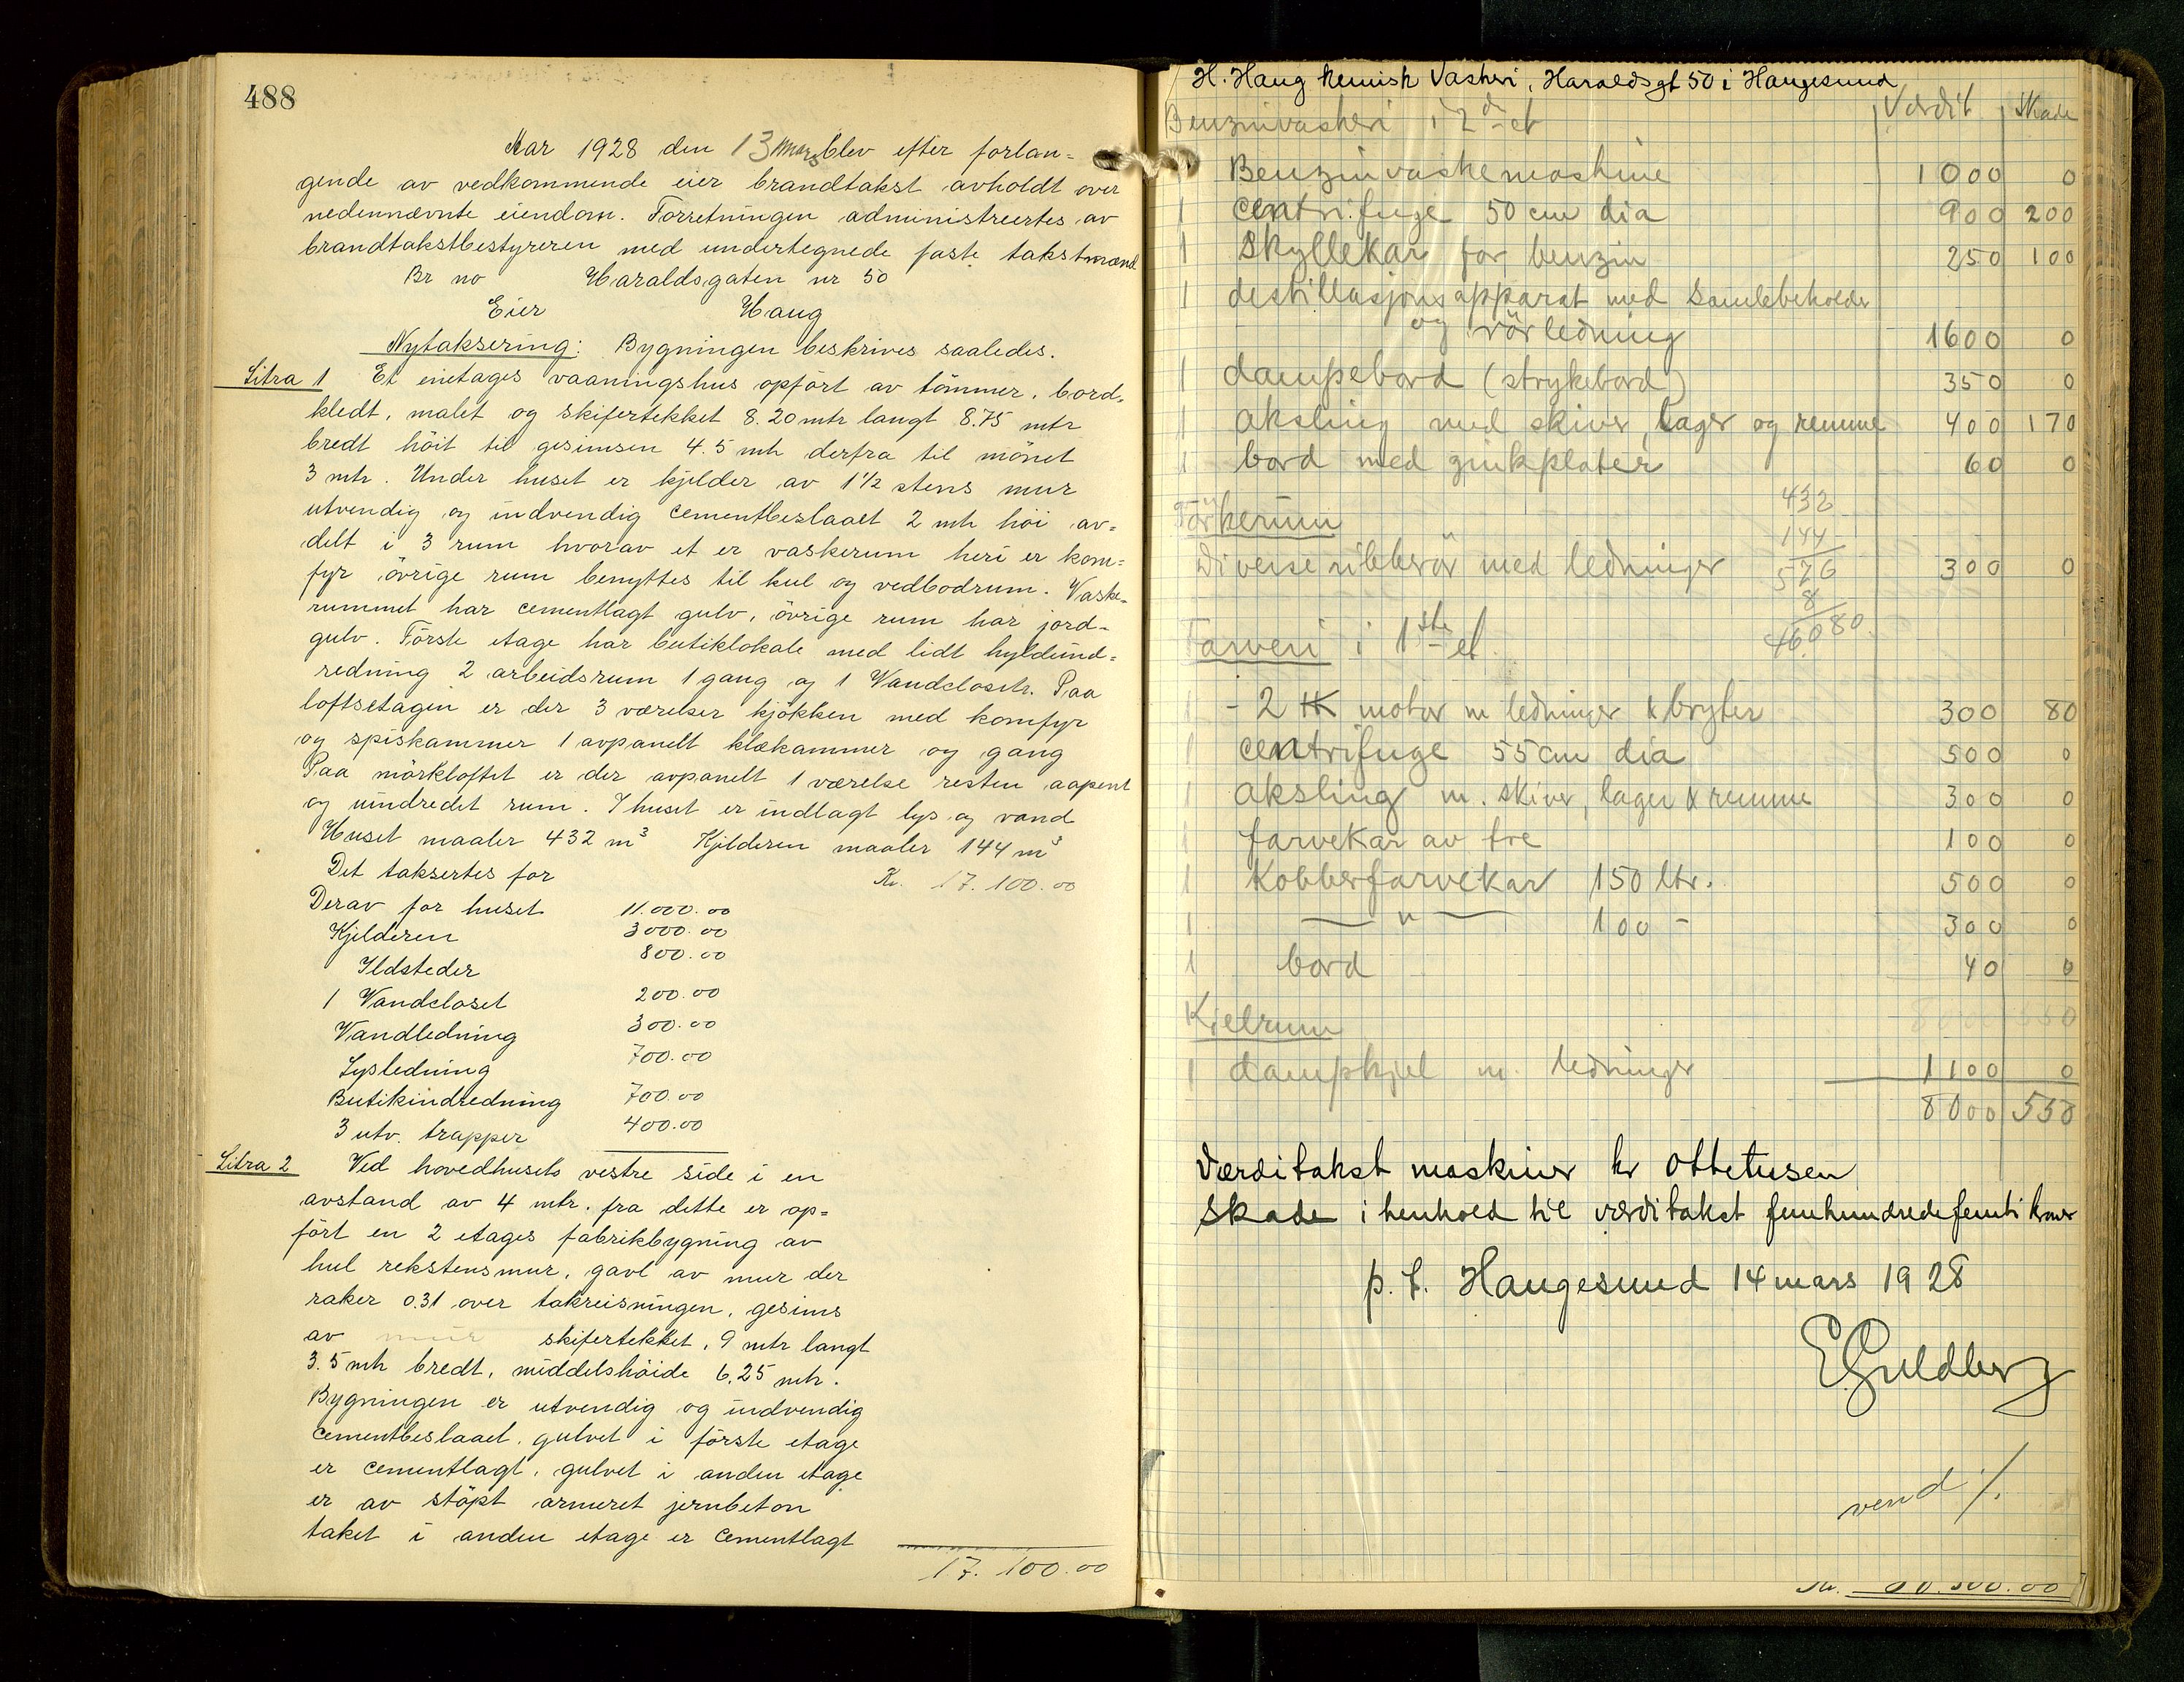 488
Aar 1928 den 13 mars blev efter forlan=
gende av vedkommende eier brandtakst avholdt over
nedennævnte eiendom. Forretningen administreertes av
brandtakstbestyreren med undertegnede faste takstmænd
Br no Haraldsgaten nr 50
Eier Haug
Nytaksering: Bygningen beskrives saaledes.
Litra 1 Et enetages vaaningshus opført av tömmer, bord=
kledt, malet og skifertekket 8.20 mtr langt 8.75 mtr
bredt höit til gesimsen 4.5 mtr derfra til mönet
3 mtr. Under huset er kjelder av 1 1/2 stens mur
utvendig og indvendig cementbeslaaet 2 mtr höi av=
delt i 3 rum hvorav et er vaskerum heri er kom=
fyr övrige rum benyttes til kul og vedbodrum. Vaske=
rummet har cementlagt gulv, övrige rum har jord=
gulv. Förste etage har butiklokale med lidt hyldeind=
redning 2 arbeidsrum 1 gang og 1 Vandcloset. Paa
loftsetagen er der 3 værelser kjökken med komfyr
og spiskammer 1 avpanelt klækammer og gang
Paa mörkloftet er der avpanelt 1 værelse resten aapent
og uindredet rum. I huset er indlagt lys og vand
Huset maaler 432 m³ Kjelderen maaler 144 m³
Det taksertes for Kr. 17.100.00
Derav for huset 11.000.00
Kjelderen 3000.00
Ildsteder 800.00
1 Vandcloset 200.00
Vandledning 300.00
Lysledning 700.00
Butikindredning 700.00
3 utv. trapper 400.00
Litra 2 Ved hovedhusets vestre side i en
avstand av 4 mtr. fra dette er op=
fört en 2 etages fabrikbygning av
hul rekstensmur, gavl av mur der
raker 0.31 over takreisningen, gesims
av mur skifertekket, 9 mtr langt
3.5 mtr bredt, middelshöide 6,25 mtr.
Bygningen er utvendig og indvendig
cementbeslaaet, gulvet i förste etage
er cementlagt, gulvet i anden etage
er av stöpt armeret jernbeton
taket i anden etage er cementlagt
17.100.00
H. Haug kemisk Vaskeri, Haraldsgt 50 i Haugesund
Benzinvaskeri i 2d et Værdit Skade
1 Benzinvaskemaskine 1000 0
1 centrifuge 50 cm dia 900 200
1 Skyllekar for benzin 250 100
1 destillasjonsapparat med Samlebeholder
og rörledning 1600 0
1 dampebord (strykebord) 350 0
1 aksling med skiver, lager og remme 400 170
1 bord med zinkplater 60 0
432
Törkerum 144
Diverse ribberör med ledninger 576 300 0
8
46080
Farveri i 1ste et
1 - 2 HK motor m ledninger & bryter 300 80
1 centrifuge 55 cm dia 500 0
1 aksling m. skiver, lager & remme 300 0
1 farvekar av tre 100 0
1 Kobberfarvekar 150 ltr. 500 0
1 — " — 100 - 300 0
1 bord 40 0
Kjelrum
1 dampkjel m. ledninger 1100 0
8000 550
Værditakst maskiner kr ottetusen
Skade i henhold til værditakst femhundredefemti kroner
p.t. Haugesund 14 mars 1928
E Guldberg
vend ./.